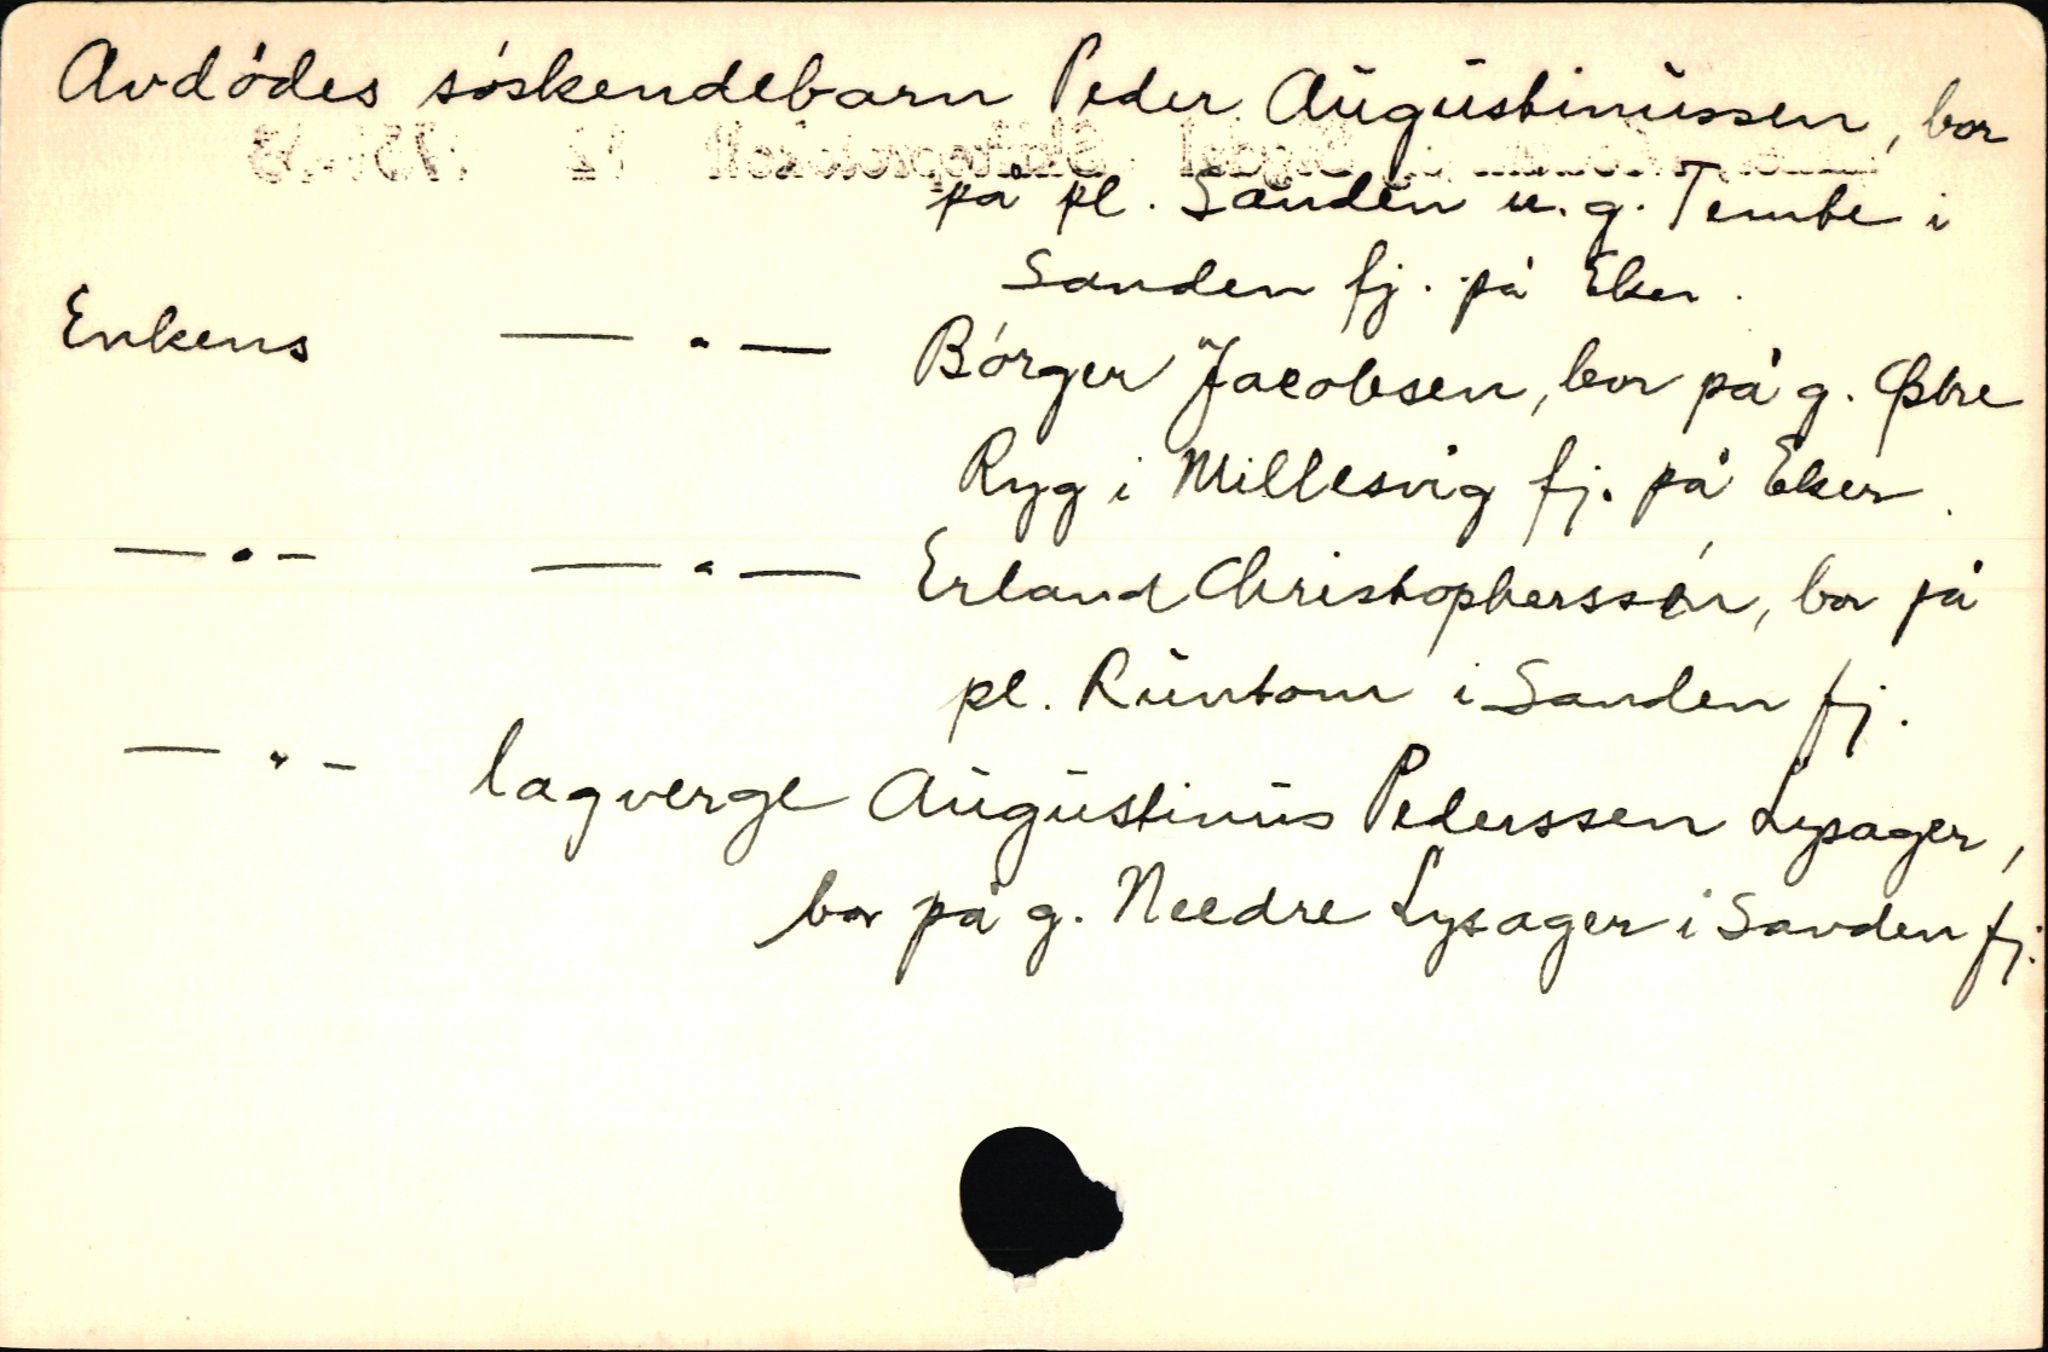 Avdödes söskendebarn Peder Augustinussen, bor
på pl. Sanden u. g. Tembe i
Sanden fj. på Eker.
Enkens — " — Börger Jacobsen, bor på g. Østre
Ryg i Millesvig fj. på Eker.
— " — — " — Erland Christopherssen, bor på
pl. Runtom i Sanden fj.
— " — lagverge Augustinus Pederssen Lysager,
bor på g. Needre Lysager i Sanden fj.